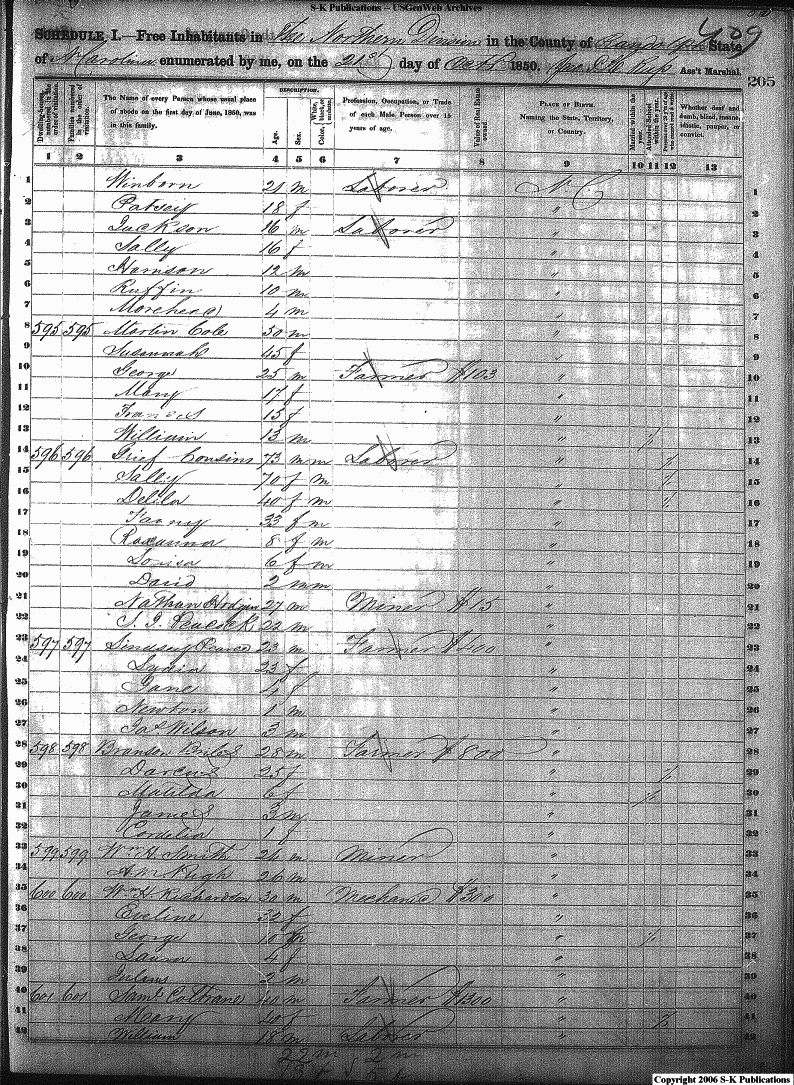 S-K Publications – USGenWeb Archives
409
SCHEDULE I.—Free Inhabitants in The Northern Division in the County of Randolph State
of N. Carolina enumerated by me, on the 21st day of Oct 1850. Ass't Marshal.
265
DESCRIPTION.
Dwelling-houses numbered in the order of visitation.
Families numbered in the order of visitation.
The Name of every Person whose usual place of abode on the first day of June, 1850, was in this family.
Age.
Sex.
Color, White, black, or mulatto.
Profession, Occupation, or Trade of each Male Person over 15 years of age.
Value of Real Estate owned.
PLACE OF BIRTH. Naming the State, Territory, or Country.
Married within the year.
Attended School within the year.
Whether deaf and dumb, blind, insane, idiotic, pauper, or convict.
1 2 3 4 5 6 7 8 9 10 11 12 13
1 Winborn 21 m Laborer N C 1
2 Patsey 18 f " 2
3 Jackson 16 m Laborer " 3
4 Sally 16 f " 4
5 Harrison 12 m " 5
6 Ruffin 10 m " 6
7 Morehead 4 m " 7
8 595 595 Martin Cole 50 m " 8
9 Susannah 45 f " 9
10 George 25 m Farmer $103 " 10
11 Mary 17 f " 11
12 Frances 15 f " 12
13 William 13 m " / 13
14 596 596 Grief Cousins 73 m m Laborer " / 14
15 Sally 70 f m " / 15
16 Delila 40 f m " / 16
17 Fanny 33 f m " 17
18 Roxanna 8 f m " 18
19 Louisa 6 f m " 19
20 David 2 m m " 20
21 Nathan Hodgin 27 m Miner $15 " 21
22 S. J. Peacock 22 m " 22
23 597 597 Lindsay Pearce 23 m Farmer $400 " 23
24 Lydia 23 f " 24
25 Jane 4 f " 25
26 Newton 1 m " 26
27 Jas Wilson 3 m " 27
28 598 598 Branson 28 m Farmer $800 " 28
29 Darcus 25 f " / 29
30 Matilda 6 f " / 30
31 James 3 m " 31
32 Cordelia 1 f " 32
33 599 599 Wm H. Smith 26 m Miner " 33
34 26 m " 34
35 600 600 Wm H. Richardson 30 m Mechanic $300 " 35
36 Eveline 32 f " 36
37 George 10 m " / 37
38 Laura 4 f " 38
39 2 m " 39
40 601 601 Saml Coltrane 40 m Farmer $1300 " 40
41 Mary 40 f " / 41
42 William 18 m Laborer " 42
22 m 2 m
Copyright 2006 S-K Publications